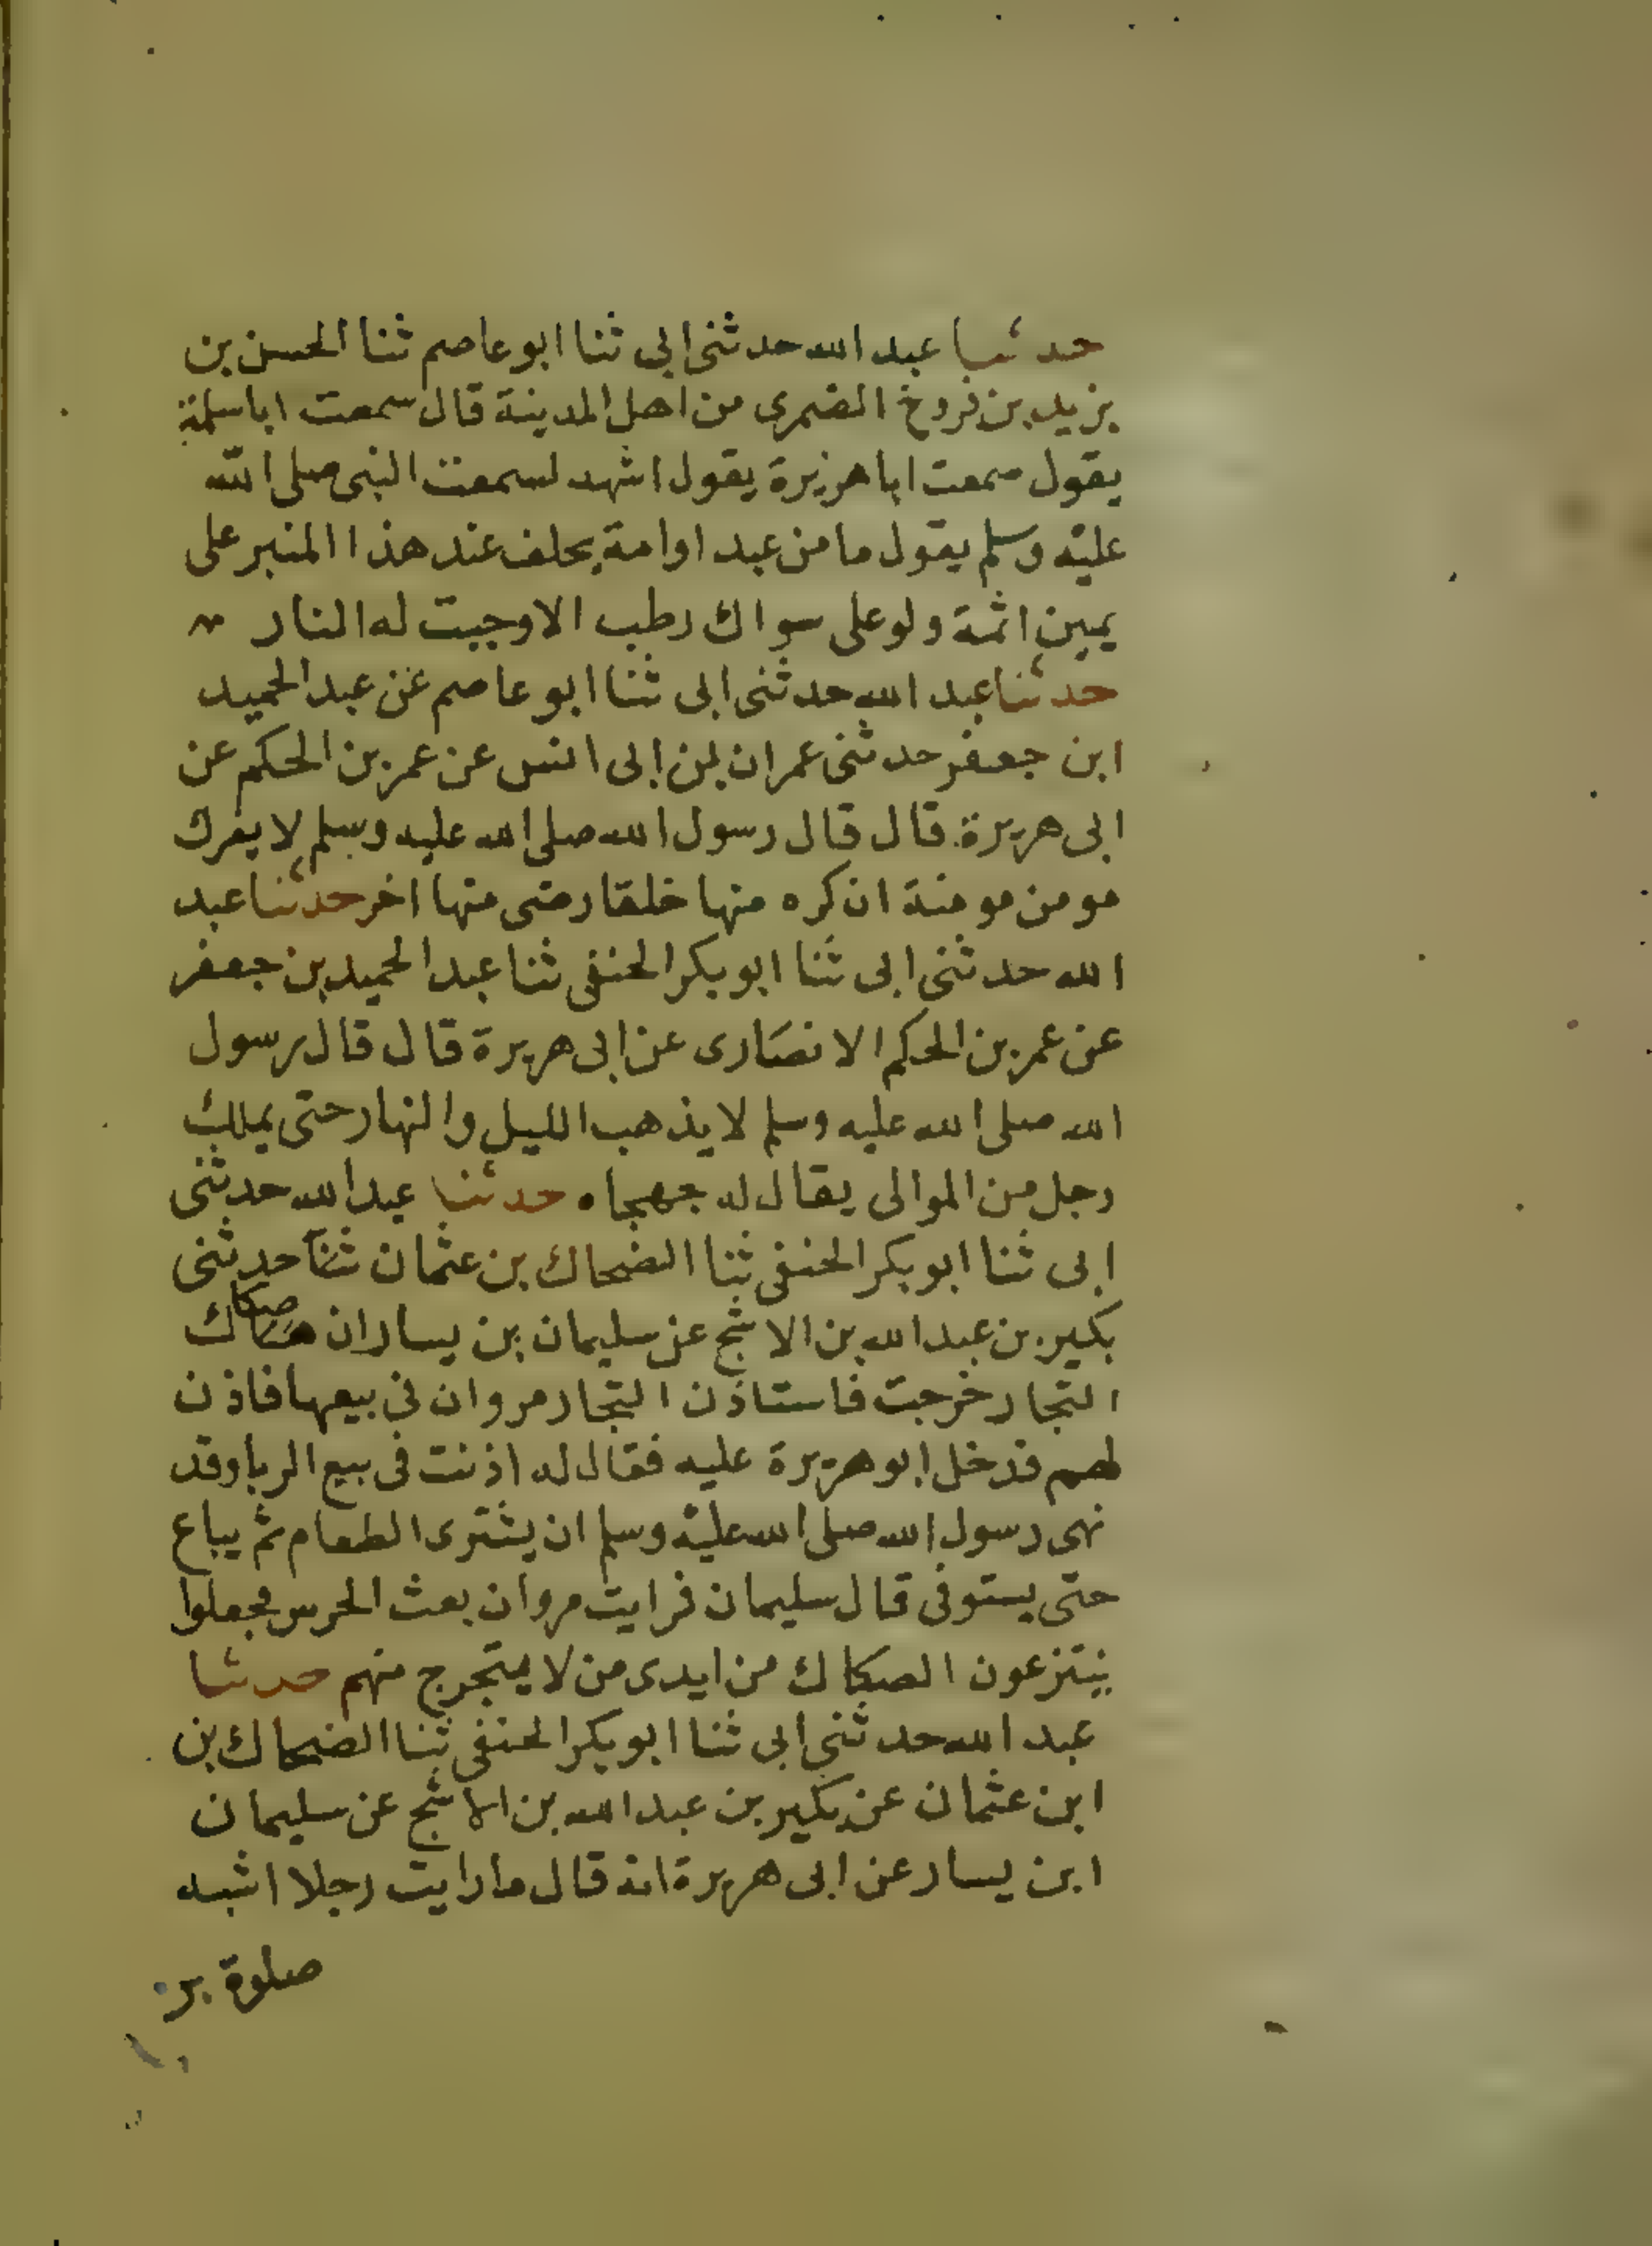 حدثنا عبد الله حدثنى ابى ثنا ابو عاصم ثنا الحسن بن
يزيد بن فروخ الضمرى من اهل المدينة قال سمعت ابا سلمة
يقول سمعت ابا هريرة يقول اشهد لسمعت النبى صلى الله
عليه وسلم يقول ما من عبد او امة يحلف عند هذا المنبر على
يمين اثمة ولو على سواك رطب الا وجبت له النار
حدثنا عبد الله حدثنى ابى ثنا ابو عاصم عن عبد الحميد
ابن جعفر حدثنى عمران بن ابى انس عن عمر بن الحكم عن
ابى هريرة قال قال رسول الله صلى الله عليه وسلم لا يفرك
مومن مومنة ان كره منها خلقا رضى منها اخر حدثنا عبد
الله حدثنى ابى ثنا ابو بكر الحنفى ثنا عبد الحميد بن جعفر
عن عمر بن الحكم الانصارى عن ابى هريرة قال قال رسول
الله صلى الله عليه وسلم لا يذهب الليل والنهار حتى يملك
رجل من الموالى يقال له جهجاه حدثنا عبد الله حدثنى
ابى ثنا ابو بكر الحنفى ثنا الضحاك بن عثمان ثنا حدثنى
بكير بن عبد الله بن الاشج عن سليمان بن يسار ان صكاك
التجار خرجت فاستاذن التجار مروان فى بيعها فاذن
لهم فدخل ابو هريرة عليه فقال له اذنت فى بيع الربا وقد
نهى رسول الله صلى الله عليه وسلم ان يشترى الطعام ثم يباع
حتى يستوفى قال سليمان فرايت مروان بعث الحرس فجعلوا
ينتزعون الصكاك من ايدى من لا يتحرج منهم حدثنا
عبد الله حدثنى ابى ثنا ابو بكر الحنفى ثنا الضحاك بن
ابن عثمان عن بكير بن عبد الله بن الاشج عن سليمان
ابن يسار عن ابى هريرة انه قال ما رايت رجلا اشبه
صلوة بر